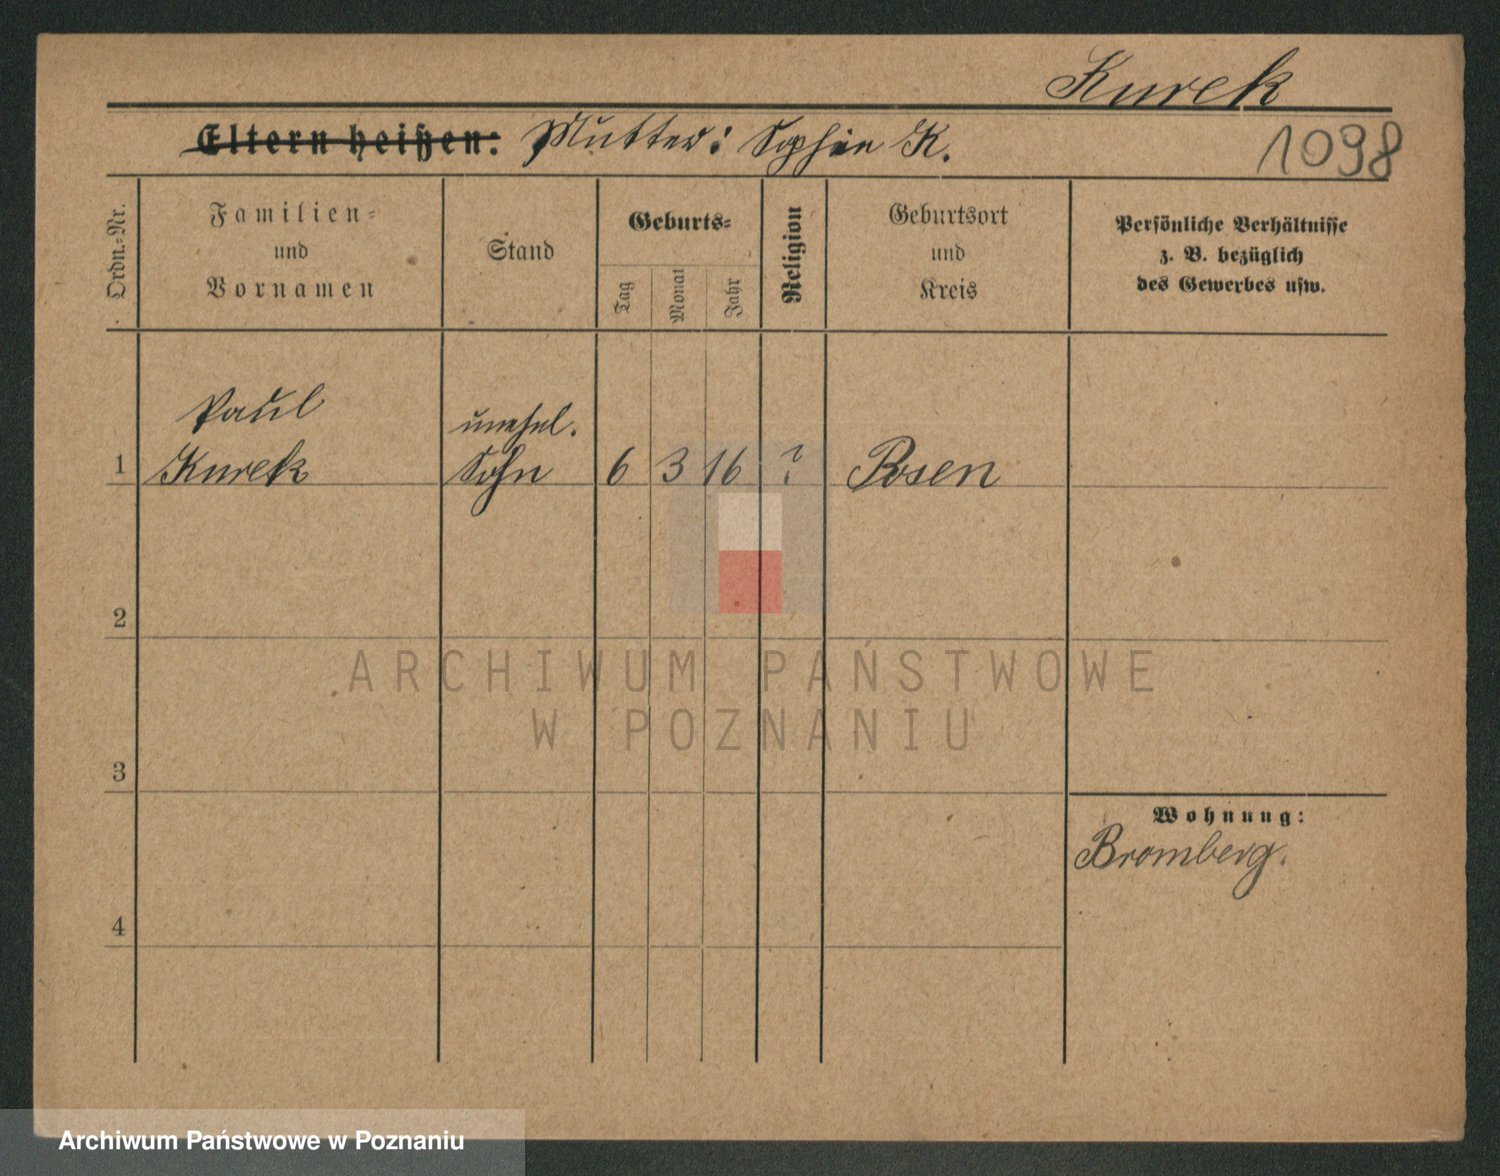 Kurek
Eltern heißen: Mutter: Sophie K.
1098
Ordn.-Nr.
Familien-
und
Vornamen
Stand
Geburts-
Tag
Monat
Jahr
Religion
Geburtsort
und
Kreis
Persönliche Verhältnisse
z. B. bezüglich
des Gewerbes usw.
Paul
unehel.
1 Kurek Sohn 6 3 16 ? Posen
2
ARCHIWUM PAŃSTWOWE
W POZNANIU
3
Wohnung:
Bromberg.
4
Archiwum Państwowe w Poznaniu